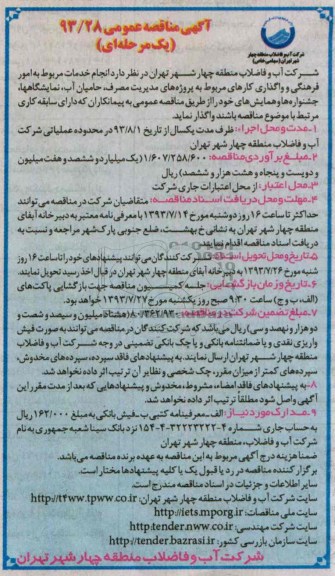 شرکت آب و فاضلاب منطقه چهار
شهر تهران (سهامی خاص)
آگهی مناقصه عمومی ۹۳/۲۸
(یک مرحله‌ای)
شــرکت آب و فاضلاب منطقه چهار شــهر تهران در نظر دارد انجام خدمات مربوط به امور
فرهنگی و واگذاری کار های مربوط به پروژه‌های مدیریت مصرف، حامیان آب، نمایشگاهها،
جشنواره ها و همایش های خود را از طریق مناقصه عمومی به پیمانکاران که دارای سابقه کاری
مرتبط با موضوع مناقصه باشند واگذار نماید.
۱ـ مدت و محل اجراء: ظرف مدت یکسال از تاریخ ۹۳/۸/۱ در محدوده عملیاتی شرکت
آب و فاضلاب منطقه چهار شهر تهران
۲ـ مبلغ برآوردی مناقصه: ۱/۶۰۷/۲۵۸/۶۰۰ (یک میلیارد و ششصد و هفت میلیون
و دویست و پنجاه و هشت هزار و ششصد) ریال
۳ـ محل اعتبار: از محل اعتبارات جاری شرکت
۴ـ مهلت و محل دریافت اسناد مناقصه: متقاضیان شرکت در مناقصه می توانند
حداکثر تا ساعت ۱۶ روز دوشنبه مورخ ۱۳۹۳/۷/۱۴ با معرفی نامه معتبر به دبیرخانه آبفای
منطقه چهار شهر تهران به نشانی خ بهشت، ضلع جنوبی پارک شهر مراجعه و نسبت به
دریافت اسناد مناقصه اقدام نمایند.
۵ـ تاریخ و محل تحویل اسناد: شرکت کنندگان می توانند پیشنهادهای خود را تا ساعت ۱۶ روز
شنبه مورخ ۱۳۹۳/۷/۲۶ به دبیرخانه آبفای منطقه چهار شهر تهران در قبال اخذ رسید تحویل نمایند.
۶ـ تاریخ و زمان بازگشایی: جلسه کمیسیون مناقصه جهت بازگشایی پاکت های
(الف، ب و ج) ساعت ۹:۳۰ صبح روز یکشنبه مورخ ۱۳۹۳/۷/۲۷ خواهد بود.
۷ـ مبلغ تضمین شرکت در مناقصه: (هشتاد میلیون و سیصد و شصت و
دو هزار و نهصد و سی) ریال می باشد که شرکت کنندگان در مناقصه می توانند به صورت فیش
واریزی نقدی و یا ضمانتنامه بانکی و یا چک بانکی تضمینی در وجه شــرکت آب و فاضلاب
منطقه چهار شــهر تهران ارسال نمایند. به پیشنهادهای فاقد سپرده، سپرده های مخدوش،
سپرده های کمتر از میزان مقرر، چک شخصی و نظایر آن ترتیب اثر داده نخواهد شد.
۸ـ به پیشنهادهای فاقد امضاء، مشروط، مخدوش و پیشنهادهایی که بعد از مدت مقرر این
آگهی واصل شود مطلقا ترتیب اثر داده نخواهد شد.
۹ـ مدارک مورد نیاز: الف ـ معرفینامه کتبی ب ـ فیش بانکی به مبلغ ۱۶۲/۰۰۰ ریال
به حساب جاری شماره ۴-۳۲۲۲۳۲۲۲-۴-۱۵۴ نزد بانک سینا شعبه جمهوری به نام
شرکت آب و فاضلاب، منطقه چهار شهر تهران
ضمنا هزینه درج آگهی مربوط به این مناقصه به عهده برنده مناقصه می باشد.
برگزار کننده مناقصه در رد یا قبول یک یا کلیه پیشنهادها مختار است.
سایر اطلاعات و جزئیات در اسناد مناقصه مندرج است.
سایت شرکت آب و فاضلاب منطقه چهار شهر تهران: http://t4ww.tpww.co.ir
سایت ملی مناقصات: http://iets.mporg.ir
سایت شرکت مهندسی: http:tender.nww.co.ir
سایت سازمان بازرسی کشور: http://tender.bazrasi.ir
شرکت آب و فاضلاب منطقه چهار شهر تهران